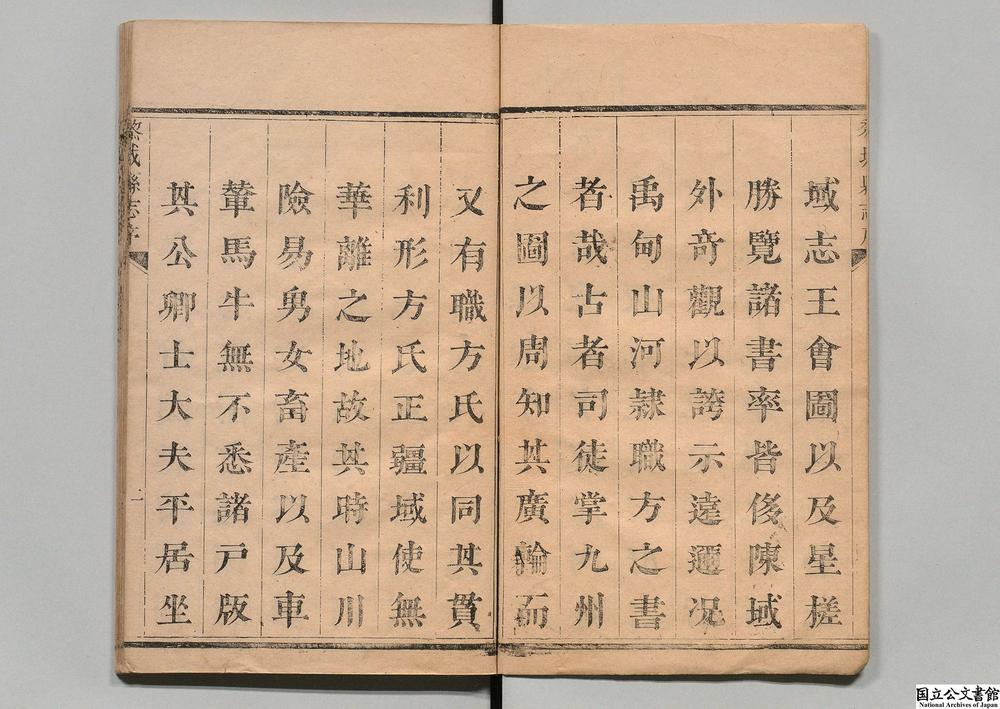 域志王會圖以及星槎
勝覽諸書率皆侈陳域
外奇觀以誇示遠邇况
禹甸山河隷職方之書
者哉古者司徒掌九州
之圖以周知其廣輪而
又有職方氏以同其貫
利形方氏正疆域使無
華離之地故其時山川
險易男女畜產以及車
輦馬牛無不悉諸戸版
其公卿士大夫平居坐
縣志序
一
国立公文書館
National Archives of Japan